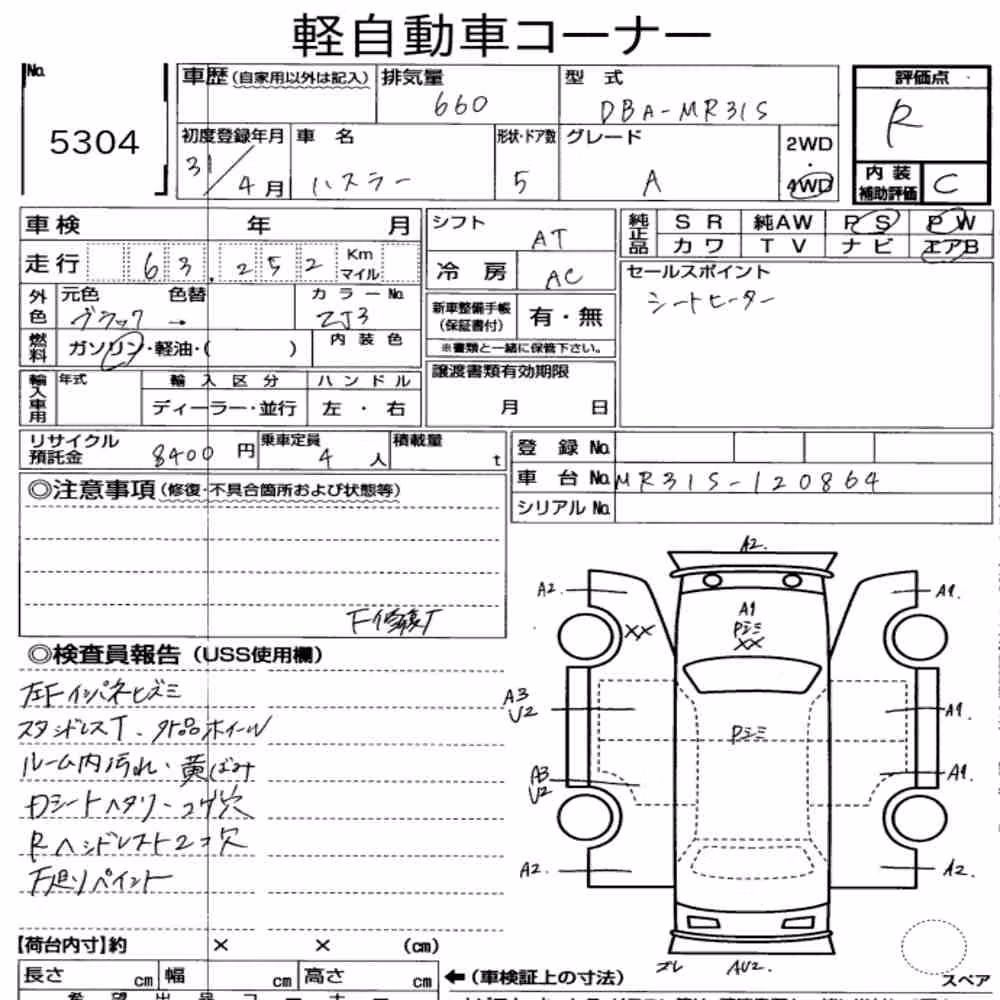 軽自動車コーナー
No. 5304
車歴 (自家用以外は記入)
排気量 660
型式 DBA-MR31S
評価点 R
初度登録年月 31/4月
車名 ハスラー
形状・ドア数 5
グレード A
2WD・4WD
内装補助評価 C
車検 年 月
シフト AT
純正品 SR 純AW PS PW
カワ TV ナビ エアB
走行 63,252 Km マイル
冷房 AC
セールスポイント
シートヒーター
外色 元色 色替 カラーNo.
ブラック → ZJ3
新車整備手帳(保証書付) 有・無
※書類と一緒に保管下さい。
燃料 ガソリン・軽油・( ) 内装色
輸入車用 年式 輸入区分 ハンドル
ディーラー・並行 左・右
譲渡書類有効期限
月 日
リサイクル預託金 8400円
乗車定員 4人
積載量 t
登録 No.
車台 No. MR31S-120864
シリアル No.
◎注意事項(修復・不具合箇所および状態等)
F修復T
◎検査員報告(USS使用欄)
左Fインパネヒズミ
スタッドレスT、外品ホイール
ルーム内汚れ・黄ばみ
Dシートヘタリ・コゲ穴
Rヘッドレスト2コ穴
下廻りペイント
A2.
A2.
A1.
XX
A1
Pシミ
XX
A3
U2
A1.
Pシミ
A3
U2
A1.
A2.
A2.
ズレ AU2.
【荷台内寸】約 × × (cm)
長さ cm 幅 cm 高さ cm
←(車検証上の寸法)
スペア
希望出品コーナー